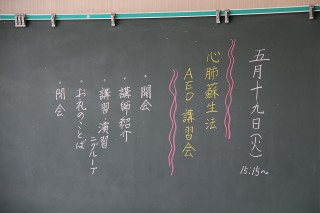 五月十九日(火)
15:15~
心肺蘇生法
AED講習会
・開会
・講師紹介
・講習 演習
ニグループ
・お礼のことば
・閉会